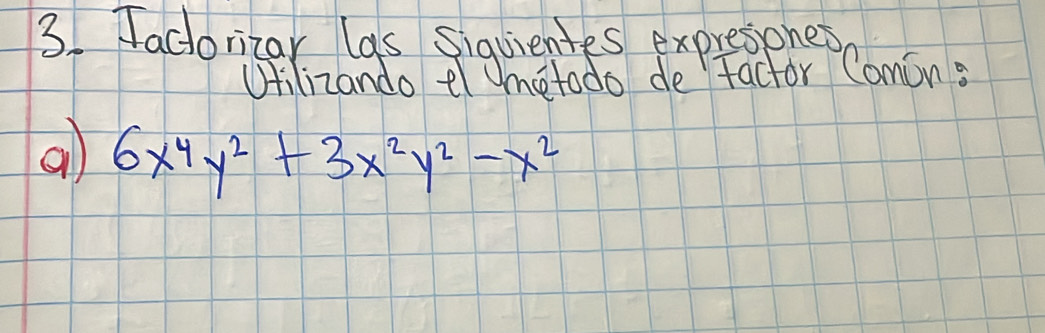 3. Factorizar las siguientes expresiones
Utilizando el método de factor Común:
a) 6x⁴y² + 3x²y² - x²